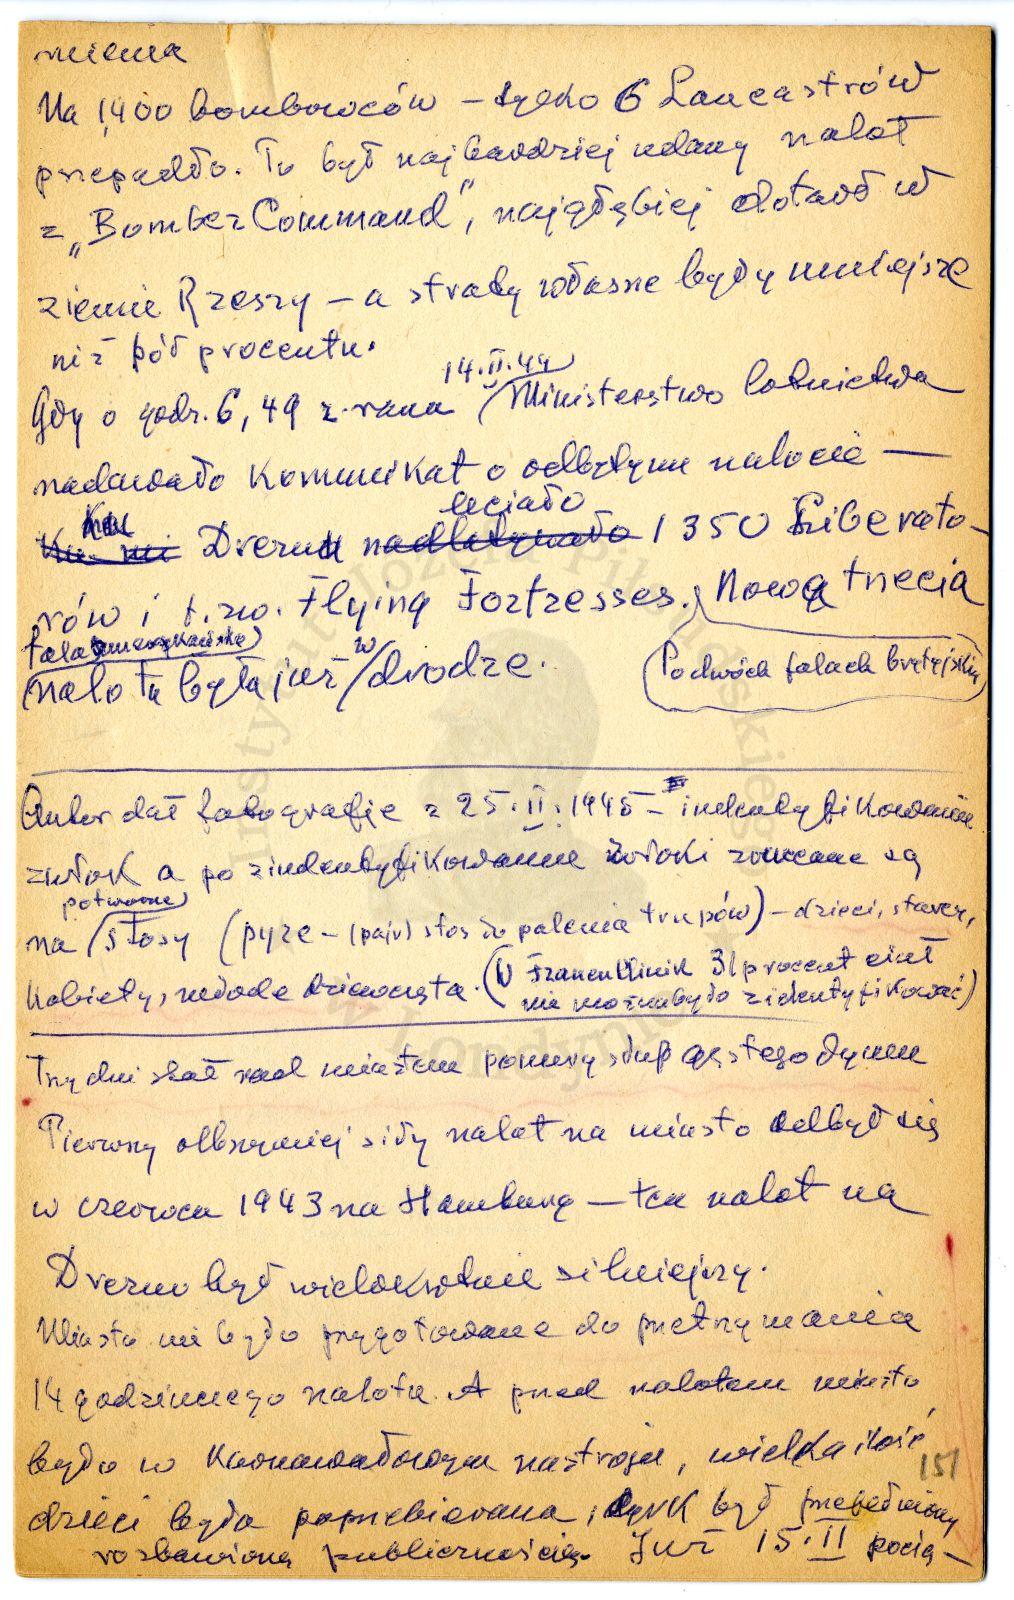 mienia
Na 1400 bombowców – tylko 6 Lancastrów
przepadło. To był najbardziej udany nalot
z „Bomber Command", najgłębiej dotarł w
ziemie Rzeszy – a straty własne były mniejsze
niż pół procentu.
14.II.44
Gdy o godz. 6,49 z rana Ministerstwo lotnictwa
nadawało komunikat o odbytym nalocie —
leciało
Ku Dreznu nadlatywało 1350 Liberato-
rów i t.zw. Flying Fortresses. Nową trzecia
fala amerykańska
nalotu była już w drodze.
(Po dwóch falach brytyjskich)
Autor dał fotografię z 25.II.1945 – indentyfikowanie
zwłok a po zindentyfikowaniu zwłoki zrucane są
potworne
na stosy (pyre – (pajr) stos do palenia trupów) – dzieci, starcy,
kobiety, młode dziewczęta. (W Frauenklinik 31 procent ciał
nie można było zidentyfikować)
Trzy dni stał nad miastem ponury słup gęstego dymu
Pierwszy olbrzymiej siły nalot na miasto odbył się
w czerwcu 1943 na Hamburg – ten nalot na
Drezno był wielokrotnie silniejszy.
Miasto nie było przygotowane do przetrzymania
14 godzinnego nalotu. A przed nalotem miasto
było w karnawałowym nastroju, wielka ilość
151
dzieci była poprzebierana, cyrk był przepełniony
rozbawioną publicznością. Już 15.II pocią–
Instytut Józefa Piłsudskiego
w Londynie